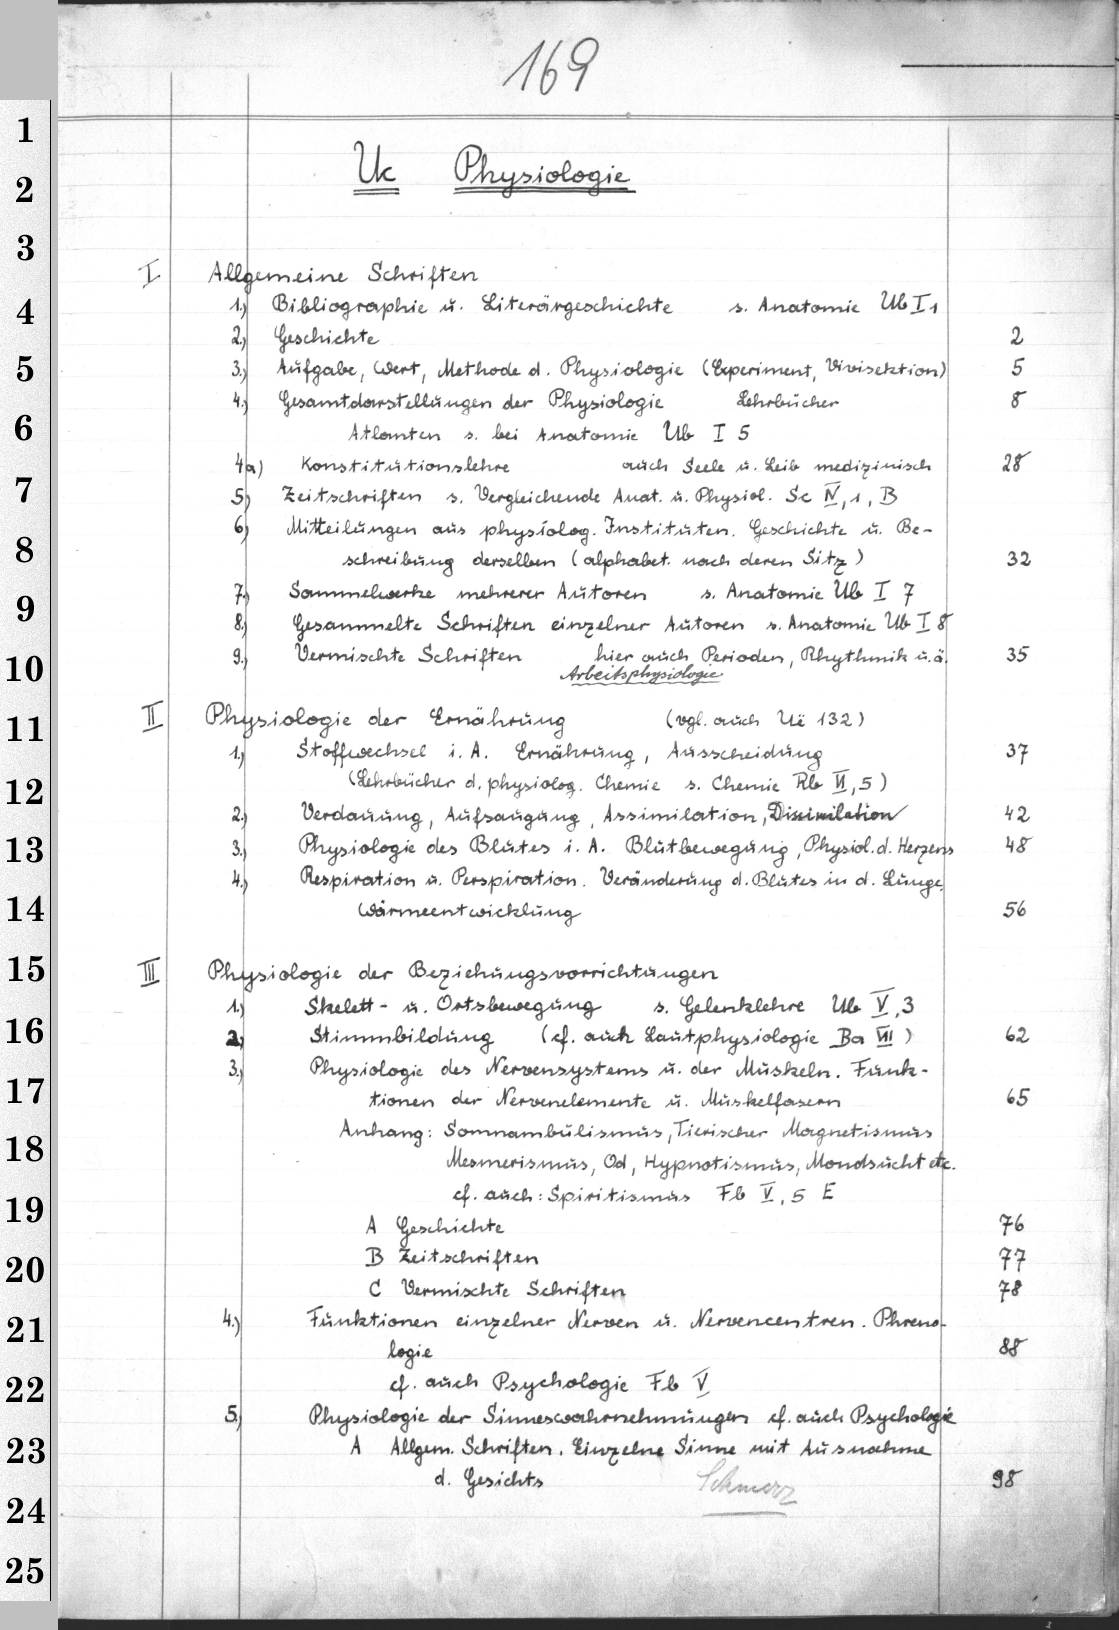 169
Uc Physiologie
I Allgemeine Schriften
1.) Bibliographie u. Literärgeschichte s. Anatomie Ub I 1
2.) Geschichte 2
3.) Aufgabe, Wert, Methode d. Physiologie (Experiment, Vivisektion) 5
4.) Gesamtdarstellungen der Physiologie Lehrbücher 8
Atlanten s. bei Anatomie Ub I 5
4a) Konstitutionslehre auch Seele u. Leib medizinisch 28
5) Zeitschriften s. Vergleichende Anat. u. Physiol. Sc IV, 1, B
6) Mitteilungen aus physiolog. Instituten. Geschichte u. Be-
schreibung derselben (alphabet. nach deren Sitz) 32
7.) Sammelwerke mehrerer Autoren s. Anatomie Ub I 7
8.) Gesammelte Schriften einzelner Autoren s. Anatomie Ub I 8
9.) Vermischte Schriften hier auch Perioden, Rhythmik u.ä. 35
Arbeitsphysiologie
II Physiologie der Ernährung (vgl. auch Ue 132)
1.) Stoffwechsel i. A. Ernährung, Ausscheidung 37
(Lehrbücher d. physiolog. Chemie s. Chemie Rb VI, 5)
2.) Verdauung, Aufsaugung, Assimilation, Dissimilation 42
3.) Physiologie des Blutes i. A. Blutbewegung, Physiol. d. Herzens 48
4.) Respiration u. Perspiration. Veränderung d. Blutes in d. Lunge.
Wärmeentwicklung 56
III Physiologie der Beziehungsvorrichtungen
1.) Skelett- u. Ortsbewegung s. Gelenklehre Ub V, 3
2.) Stimmbildung (cf. auch Lautphysiologie Ba VII) 62
3.) Physiologie des Nervensystems u. der Muskeln. Funk-
tionen der Nervenelemente u. Muskelfasern 65
Anhang: Somnambulismus, Tierischer Magnetismus
Mesmerismus, Od, Hypnotismus, Mondsucht etc.
cf. auch: Spiritismus Fb V, 5 E
A Geschichte 76
B Zeitschriften 77
C Vermischte Schriften 78
4.) Funktionen einzelner Nerven u. Nervencentren. Phreno-
logie 88
cf. auch Psychologie Fb V
5.) Physiologie der Sinneswahrnehmungen cf. auch Psychologie
A Allgem. Schriften. Einzelne Sinne mit Ausnahme
d. Gesichts Schmerz 98
1
2
3
4
5
6
7
8
9
10
11
12
13
14
15
16
17
18
19
20
21
22
23
24
25